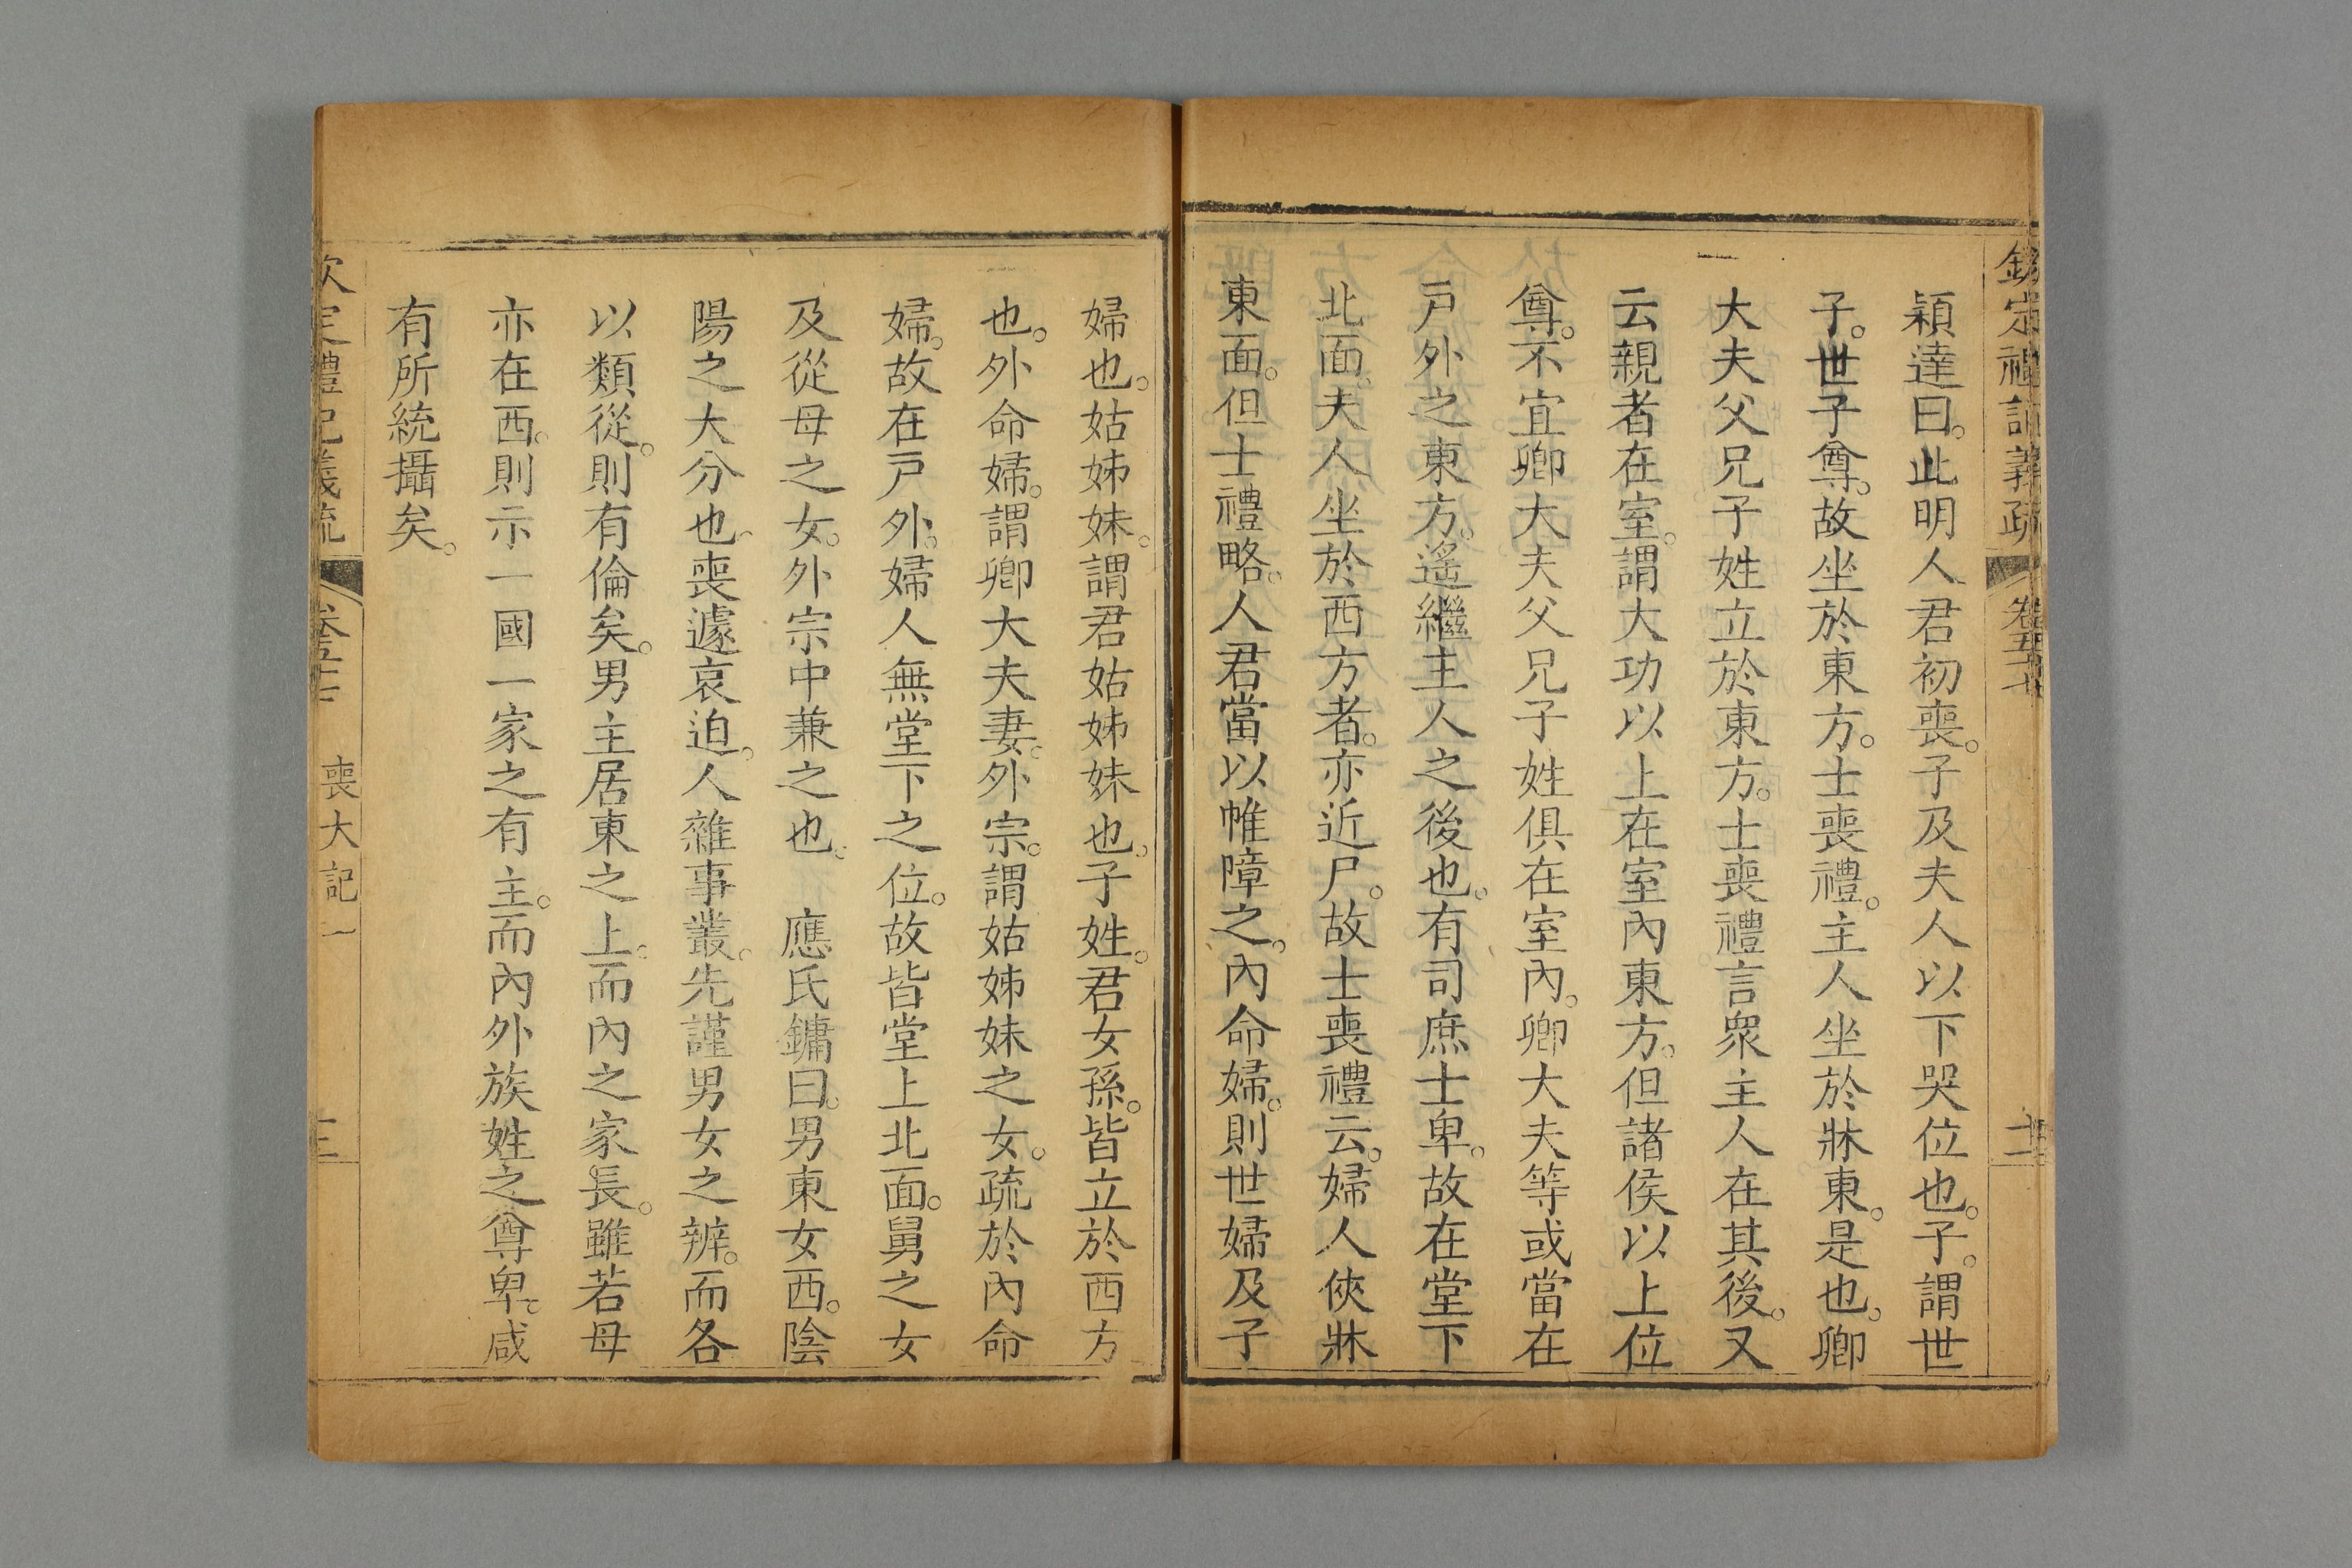 欽定禮記義疏 卷五十七 十二
穎達曰。此明人君初喪。子及夫人以下哭位也。子。謂世
子。世子尊。故坐於東方。士喪禮。主人坐於牀東。是也。卿
大夫父兄子姓立於東方。士喪禮言衆主人在其後。又
云親者在室。謂大功以上在室內東方。但諸侯以上位
尊。不宜卿大夫父兄子姓俱在室內。卿大夫等或當在
戸外之東方。遙繼主人之後也。有司庶士卑。故在堂下
北面。夫人坐於西方者。亦近尸。故士喪禮云。婦人俠牀
東面。但士禮略。人君當以帷障之。內命婦。則世婦及子
婦也。姑姊妹。謂君姑姊妹也。子姓。君女孫。皆立於西方
也。外命婦。謂卿大夫妻。外宗。謂姑姊妹之女。疏於內命
婦。故在戸外。婦人無堂下之位。故皆堂上北面。舅之女
及從母之女。外宗中兼之也。 應氏鏞曰。男東女西。陰
陽之大分也。喪遽哀迫。人雜事叢。先謹男女之辨。而各
以類從。則有倫矣。男主居東之上。而內之家長。雖若母
亦在西。則示一國一家之有主。而內外族姓之尊卑。咸
有所統攝矣。
欽定禮記義疏 卷五十七 喪大記一 十三